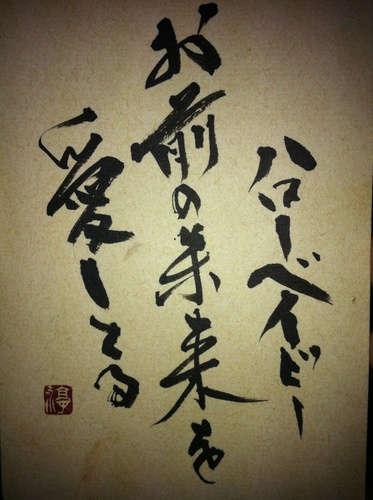 ハローベイビー
お前の未来を
愛してる